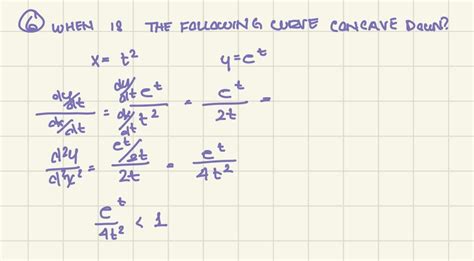 6 WHEN IS THE FOLLOWING CURVE CONCAVE DOWN?
x = t² y = e^t
dy/dt / dx/dt = dy/dt e^t / dx/dt t² = e^t / 2t =
d²y / d²x² = e^t/2t / 2t = e^t / 4t²
e^t / 4t² < 1